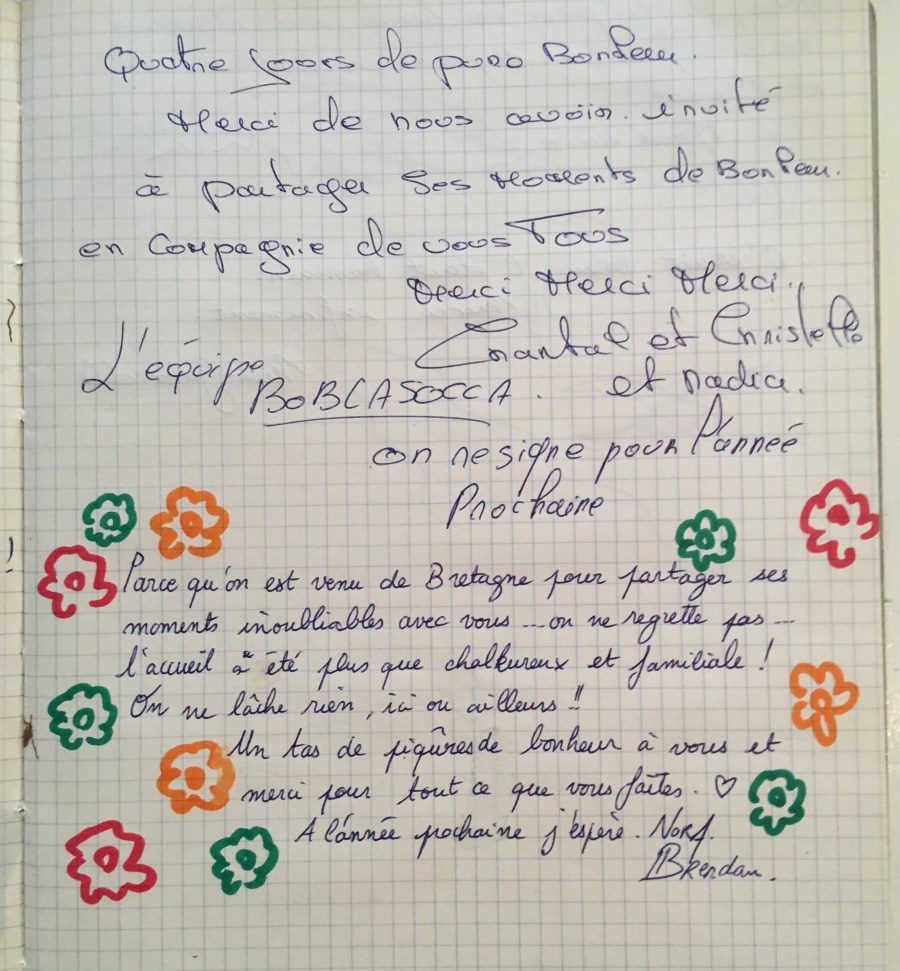 Quatre Jours de pure Bonheur.
Merci de nous avoir invité
à partager ses Moments de Bonheur.
en Compagnie de vous Tous
Merci Merci Merci.
Chantal et Christelle
L'équipe
et nadia.
BOBCASOCCA.
on resigne pour l'année
Prochaine
Parce qu'on est venu de Bretagne pour partager ses
moments inoubliables avec vous ... on ne regrette pas ...
l'accueil à été plus que chalheureux et familiale !
On ne lâche rien, ici ou ailleurs !!
Un tas de piqûres de bonheur à vous et
merci pour tout ce que vous faîtes. ♡
A l'année pochaine j'espère.
Brendan.